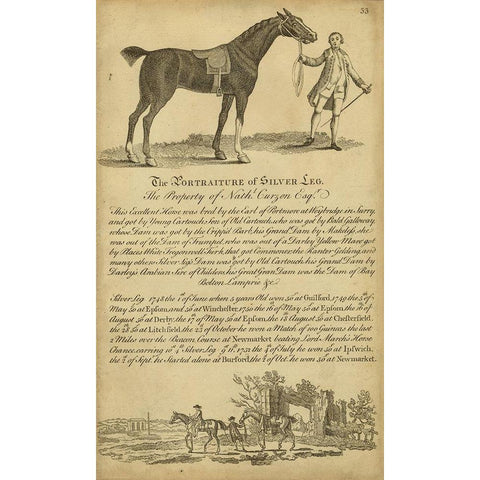 33
The PORTRAITURE of SILVER LEG.
The Property of Nath.l Curzon Esq.r
This Excellent Horse was bred by the Earl of Portmore at Weybridge in Surry,
and got by Young Cartouch, Son of Old Cartouch, who was got by Bald Galloway,
whose Dam was got by the Cripple Barb, his Grand Dam by Makeless, she
was out of the Dam of Trumpet, who was out of a Darley Yellow Mare got
by Places White
that got Commoner, the Hunter Gelding, and
many others. Silver Leg's Dam was got by Old Cartouch, his Grand Dam by
Darley's Arabian Sire of Childers, his Great Gran Dam was the Dam of Bay
Bolton, Lamprie &c.
Silver Leg 1748 the 1st of June when 5 years Old won 50 at Guilford, 1749 the 5th of
May 50 at Epsom, and 50 at Winchester, 1750 the 16th of May 50 at Epsom, the 16th of
August 50 at Derby, the 17th of May 50 at Epsom, the 13 August 50 at Chesterfield,
the 28 50 at Litchfield, the 22d of October he won a Match of 100 Guineas the last
2 Miles over the Beacon Course at Newmarket beating Lord March's Horse
Chance, carring 10st 4lb Silver Leg 9st 1752 the 4th of July he won 50 at Ipswich,
the 2d of Sept. he Started alone at Burford, the 2d of Oct. he won 50 at Newmarket.